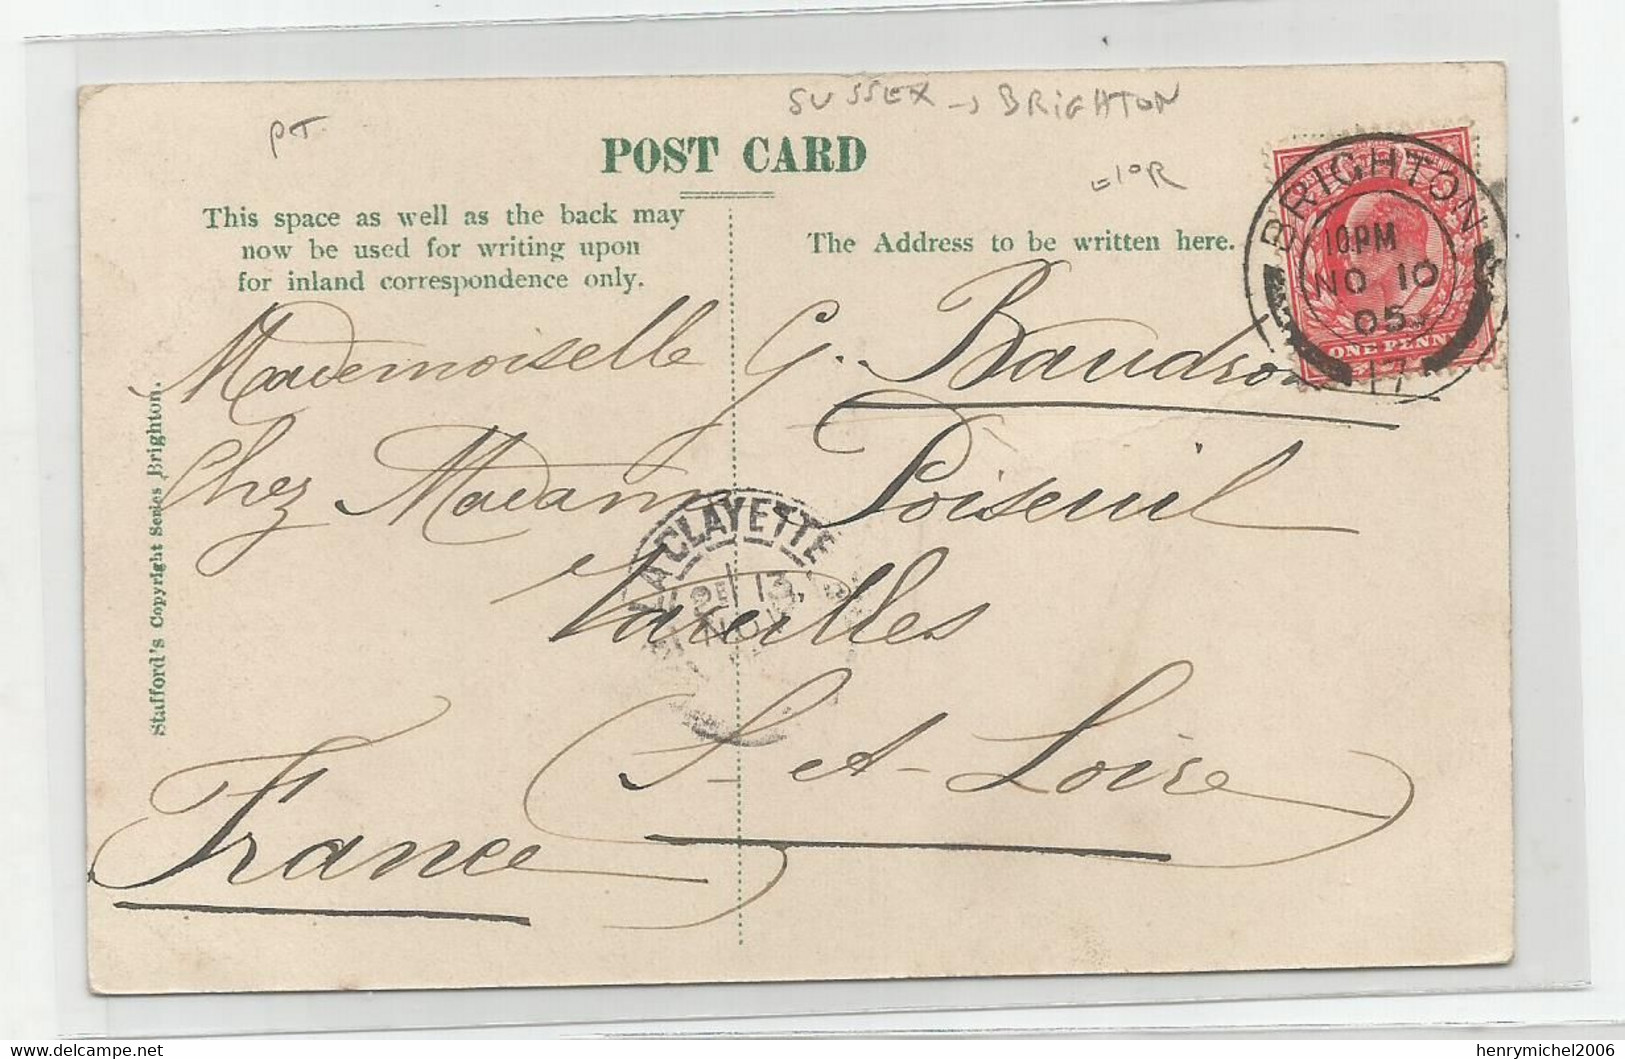 SUSSEX → BRIGHTON
PT
POST CARD
This space as well as the back may
now be used for writing upon
for inland correspondence only.
The Address to be written here.
BRIGHTON
10PM
NO 10
05
17
ONE PENNY
Mademoiselle G. Baudron
Chez Madame Poiseuil
Vareilles
S-et-Loire
France
LA CLAYETTE
13
NOV
Stafford's Copyright Series Brighton.
henrymichel2006
delcampe.net